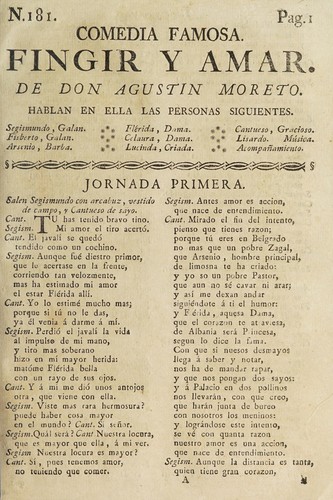 N.181.
Pag. 1
COMEDIA FAMOSA.
FINGIR Y AMAR.
DE DON AGUSTIN MORETO.
HABLAN EN ELLA LAS PERSONAS SIGUIENTES.
Segismundo, Galan.
Fisberto, Galan.
Arsenio, Barba.
Flérida, Dama.
Celaura, Dama.
Lucinda, Criada.
Cantueso, Gracioso.
Lisardo. Música.
Acompañamiento.
JORNADA PRIMERA.
Salen Segismundo con arcabuz, vestido
de campo, y Cantueso de sayo.
Cant. TU has tenido bravo tino.
Segism. Mi amor el tiro acertó.
Cant. El javalí se quedó
tendido como un cochino.
Segism. Aunque fué diestro primor,
que lo acertase en la frente,
corriendo tan velozmente,
mas ha estimado mi amor
el estar Flérida allí.
Cant. Yo lo estimé mucho mas;
porque si tú no le das,
ya él venia á darme á mí.
Segism. Perdió el javalí la vida
al impulso de mi mano,
y tiro mas soberano
hizo en mi mayor herida:
matóme Flérida bella
con un rayo de sus ojos.
Cant. Y á mí me dió unos antojos
otra, que viene con ella.
Segism. Viste mas rara hermosura?
puede haber cosa mayor
en el mundo? Cant. Sí señor.
Segism. Quál será? Cant. Nuestra locura,
que es mayor que ella, á mi ver.
Segism. Nuestra locura es mayor?
Cant. Sí, pues tenemos amor,
no teniendo que comer.
Segism. Antes amor es accion,
que nace de entendimiento.
Cant. Mirado el fin del intento,
pienso que tienes razon;
porque tú eres en Belgrado
no mas que un pobre Zagal,
que Arsenio, hombre principal,
de limosna te ha criado:
y yo so un pobre Pastor,
que aun no sé cavar ni arar;
y así me dexan andar
siguiéndote á tí el humor:
y Flérida, aquesa Dama,
que el corazon te atavieta,
de Albania será Princesa,
segun lo dice la fama.
Con que si nuesos desmayos
llega á saber y notar,
nos ha de mandar rapar,
y que nos pongan dos sayos:
y á Palacio en dos pollinos
nos llevarán, con que creo,
que harán junta de bureo
con nosotros los meninos
y lográndose este intento,
se vé con quanta razon
nuestro amor es una accion,
que nace de entendimiento.
Segism. Aunque la distancia es tanta,
quien tiene gran corazon,
A